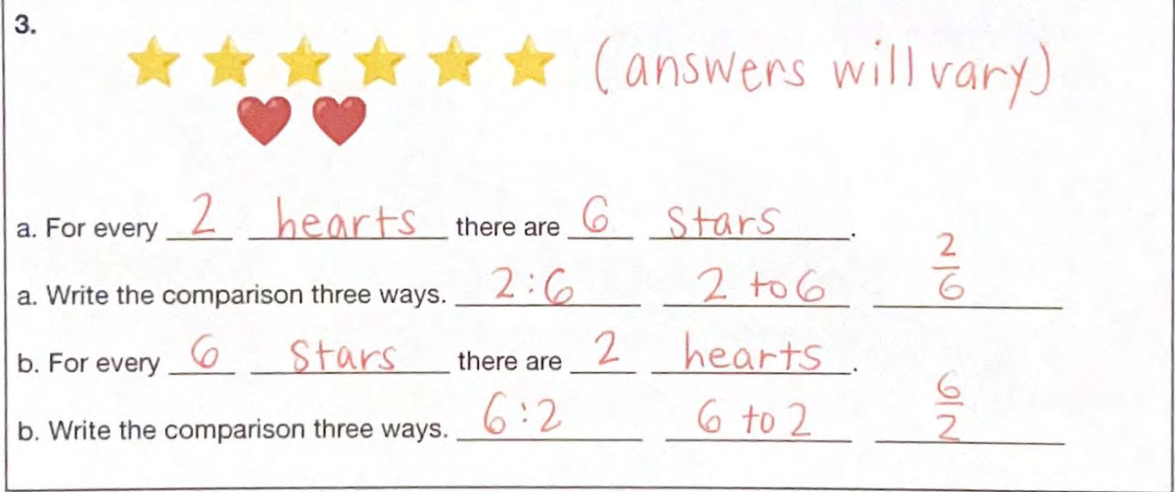 3.
(answers will vary)
a. For every 2 hearts there are 6 stars.
a. Write the comparison three ways. 2:6 2 to 6 2/6
b. For every 6 stars there are 2 hearts.
b. Write the comparison three ways. 6:2 6 to 2 6/2